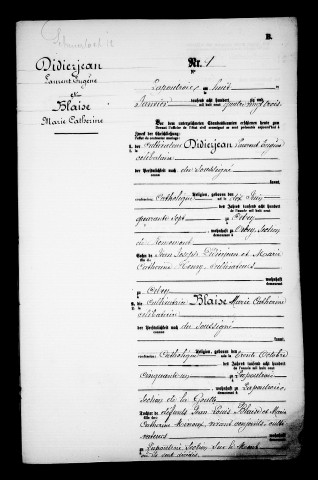 B.
Didierjean
Laurent Eugène
&
Blaise
Marie Catherine
Nr. 1
Lapoutroie, am huit
Janvier tausend acht hundert quatre vingt trois
Vor dem unterzeichneten Standesbeamten erschienen heute zum
Zweck der Eheschließung:
1. der cultivateur Didierjean Laurent Eugène
célibataire
der Persönlichkeit nach du soussigné
kannt,
catholique Religion, geboren den dix Juin
des Jahres tausend acht hundert
quarante sept zu Orbey
, wohnhaft zu Orbey, section
de
Sohn des Jean Joseph Didierjean et Marie
Catherine Henry, cultivateurs
wohnhaft
zu Orbey
2. die cultivatrice Blaise Marie Catherine
célibataire
der Persönlichkeit nach du soussigné
kannt,
catholique Religion, geboren den trente Octobre
des Jahres tausend acht hundert
cinquante zu Lapoutroie
, wohnhaft zu Lapoutroie,
section de la Goutte
Tochter der défunts Jean Louis Blaise et Marie
Catherine vivant conjoints, culti
vateurs wohnhaft
zu Lapoutroie section sur le Mont